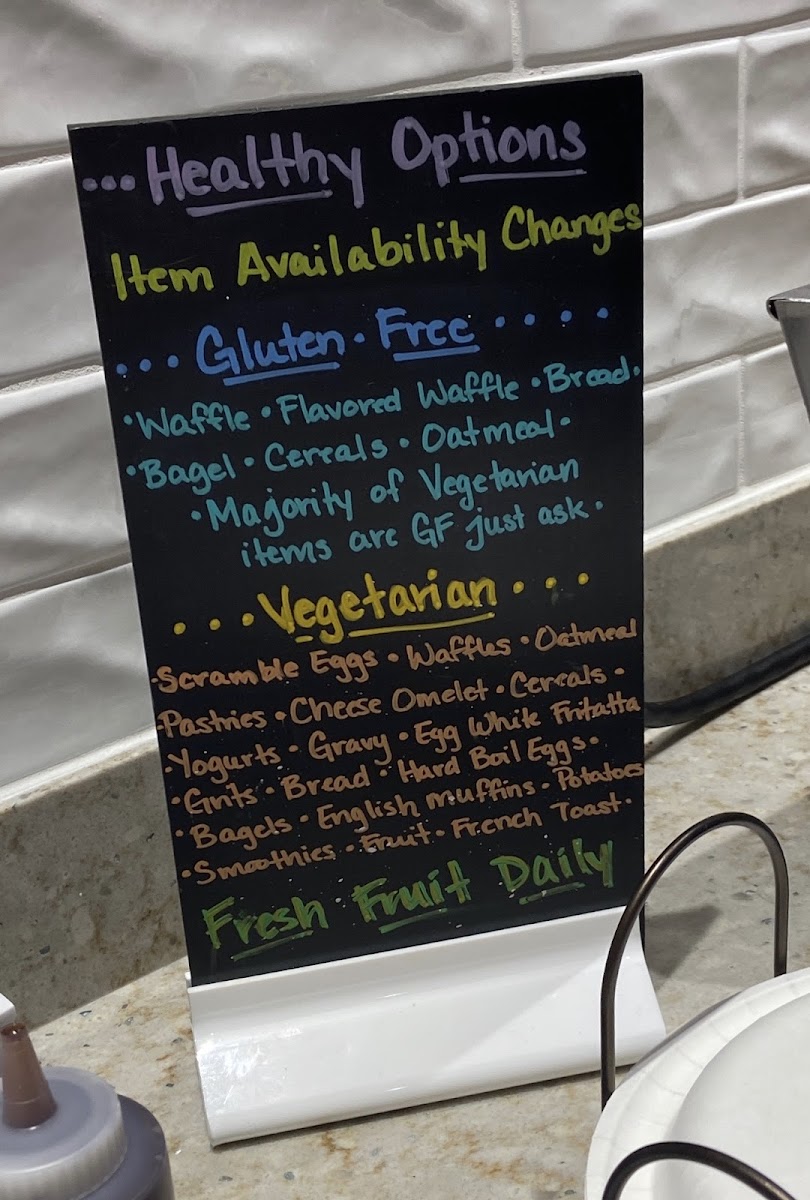 ...Healthy Options
Item Availability Changes
...Gluten·Free....
·Waffle·Flavored Waffle·Bread·
·Bagel·Cereals·Oatmeal·
·Majority of Vegetarian
items are GF just ask·
...Vegetarian...
·Scramble Eggs·Waffles·Oatmeal
·Pastries·Cheese Omelet·Cereals·
·Yogurts·Gravy·Egg White Fritatta
·Grits·Bread·Hard Boil Eggs·
·Bagels·English muffins·Potatoes
·Smoothies·Fruit·French Toast·
Fresh Fruit Daily